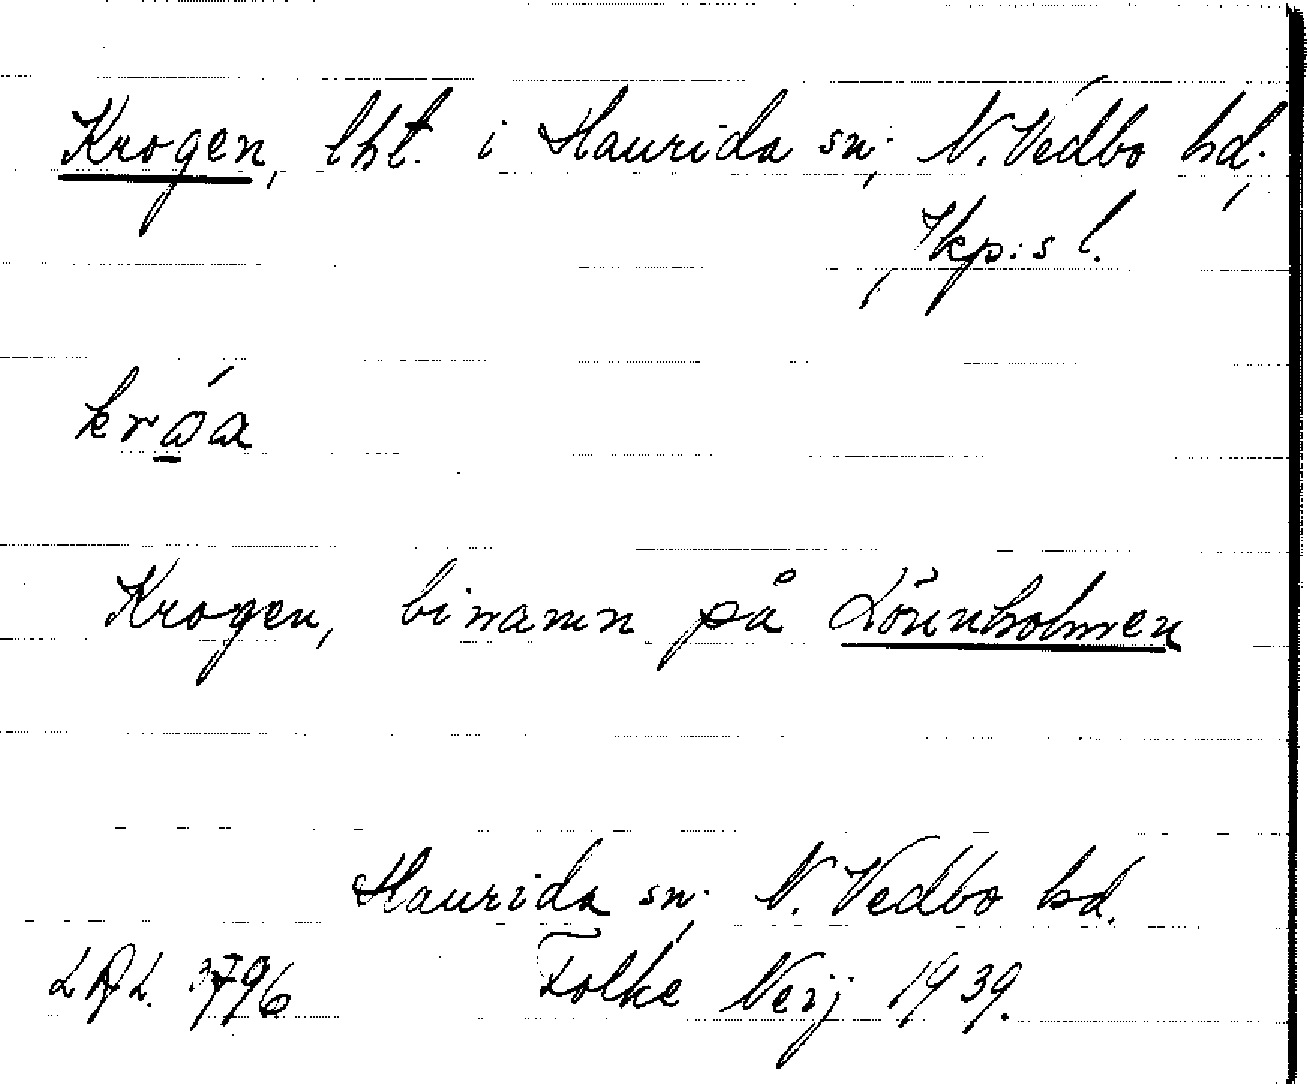 Krogen, lht. i Haurida sn., N. Vedbo hd.,
Jkp:s l.
Krogen, binamn på Lönnholmen
Haurida sn. N. Vedbo hd.
3796 Folke Neij 1939.